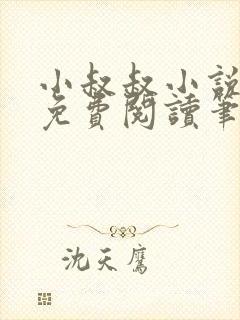 小叔叔小說
免費閱讀筆
沈天鷹